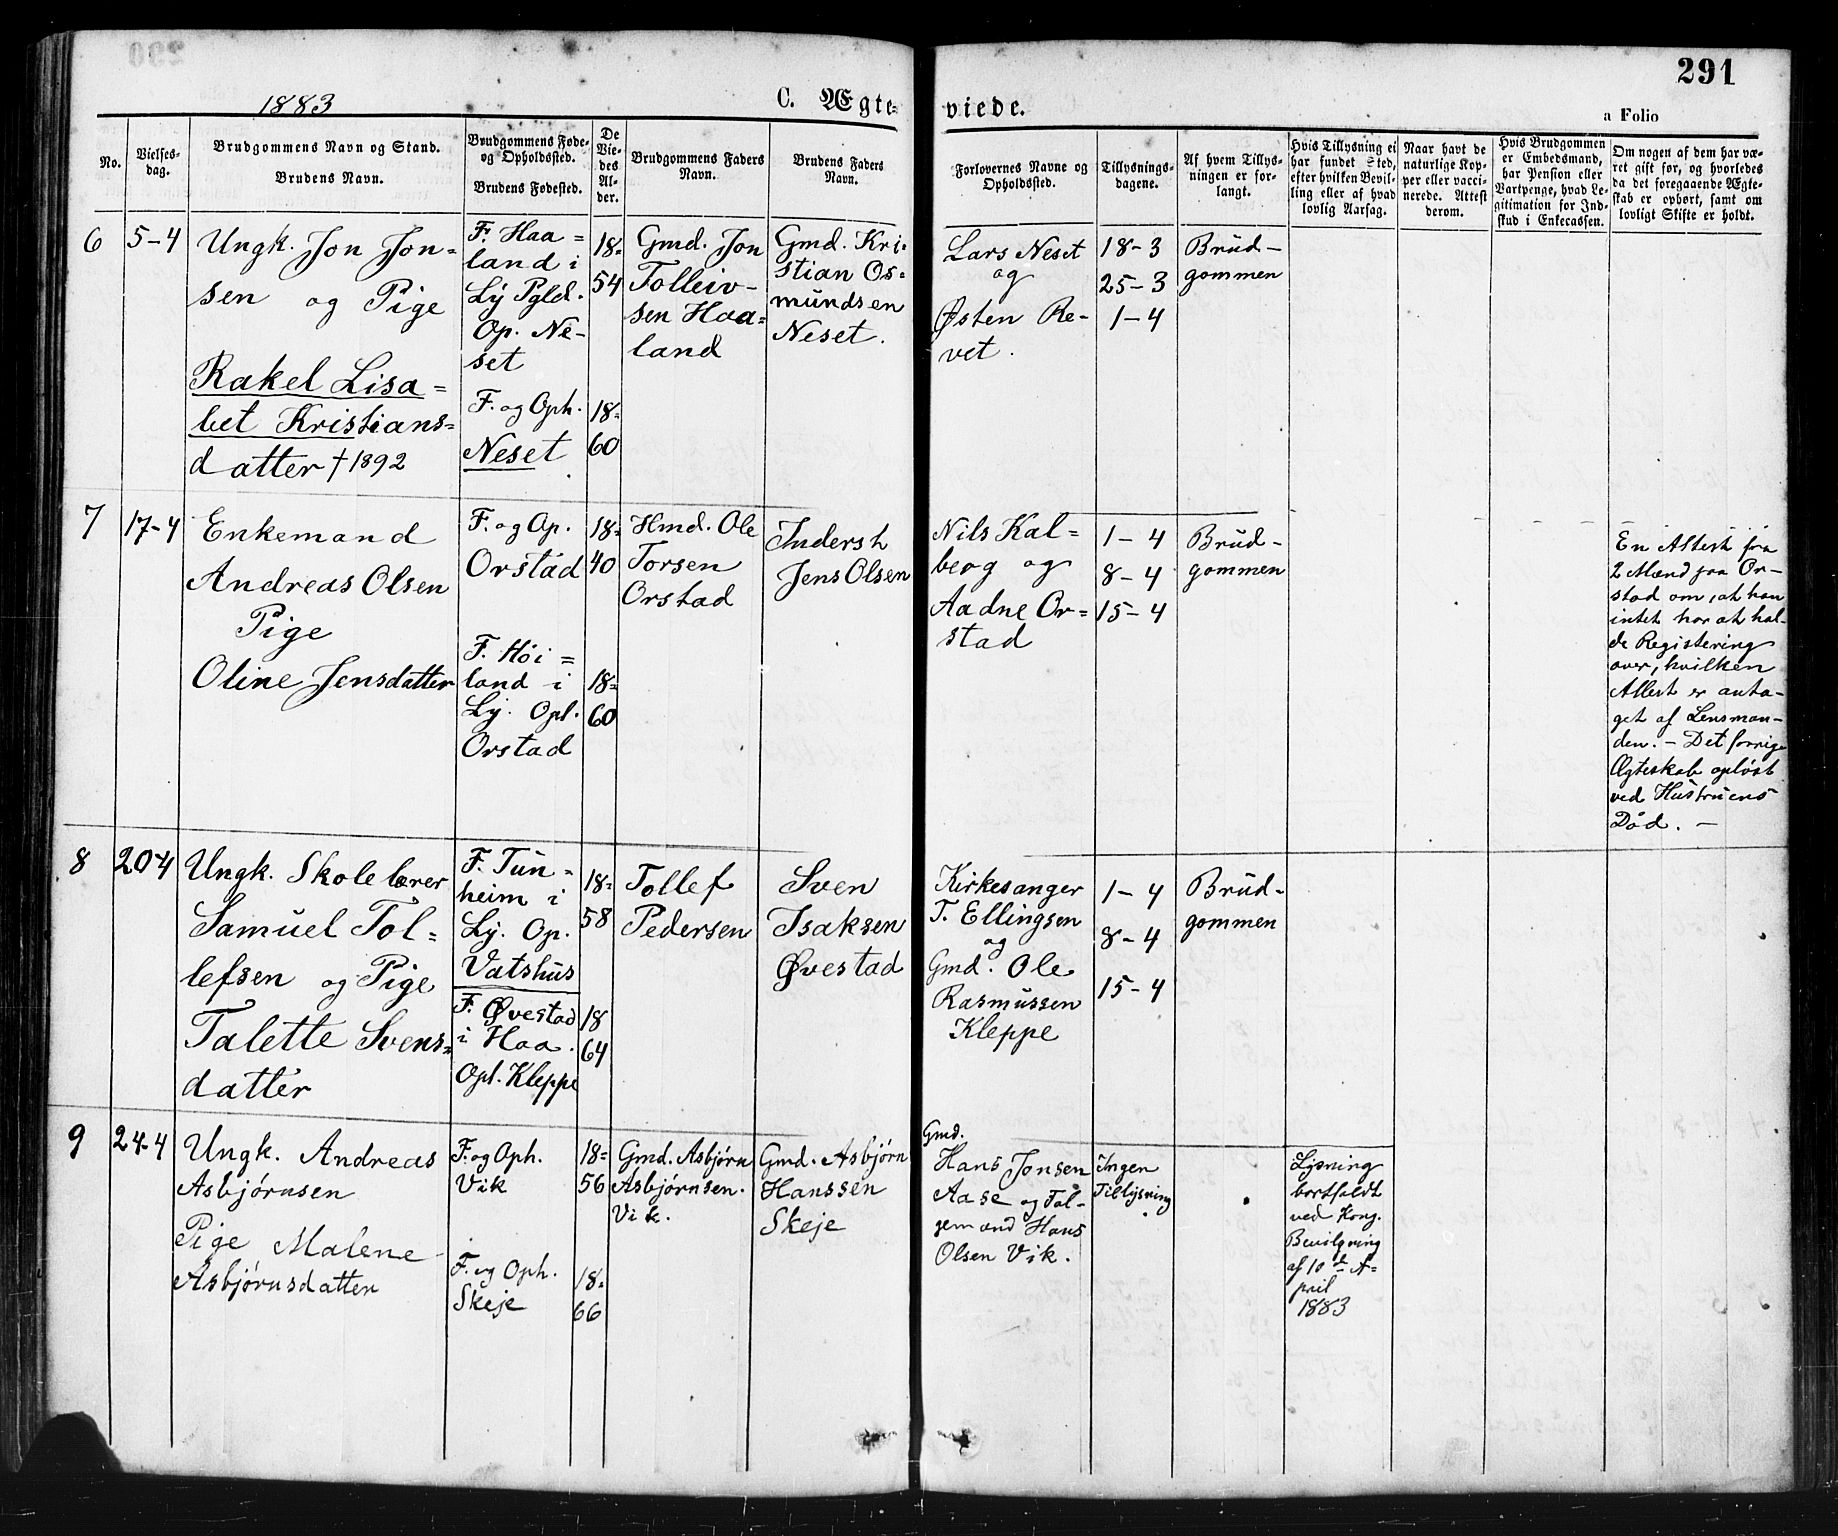 291
1883
C. Ægte-
viede.
a Folio
No.
Vielses-
dag.
Brudgommens Navn og Stand.
Brudens Navn.
Brudgommens Føde-
og Opholdssted.
Brudens Fødested.
De
Vie-
des
Al-
der.
Brudgommens Faders
Navn.
Brudens Faders
Navn.
Forlovernes Navne og
Opholdssted.
Tillysnings-
dagene.
Af hvem Tillys-
ningen er for-
langt.
Hvis Tillysning ei
har fundet Sted,
efter hvilken Bevil-
ling eller af hvad
lovlig Aarsag.
Naar havt de
naturlige Kop-
per eller vacci-
nerede. Attest
derom.
Hvis Brudgommen
er Embedsmand,
har Pension eller
Vartpenge, hvad Le-
gitimation for Ind-
skud i Enkecassen.
Om nogen af dem har væ-
ret gift før, og hvorledes
da det foregaaende Ægte-
skab er ophørt, samt om
lovligt Skifte er holdt.
6
5-4
Ungk. Jon Jon-
sen og Pige
Rakel Lisa=
bet Kristians=
datter † 1892
F. Haa=
land i
Ly Pgld.
Op. Ne-
set
F. og Oph.
Neset
18=
54
18=
60
Gmd. Jon
Tolleiv-
sen Haa=
land
Gmd. Kri-
stian Os=
mundsen
Neset.
Lars Neset
og
Østen Re-
vet.
18-3
25-3
1-4
Brud-
gommen
7
17-4
Enkemand
Andreas Olsen
Pige
Oline Jensdatter
F. og Op.
Orstad
F. Høi=
land i
Ly. Opl.
Orstad
18=
40
18=
60
Hmd. Ole
Torsen
Orstad
Inderst
Jens Olsen
Nils Kal=
berg og
Aadne Or=
stad
1-4
8-4
15-4
Brud-
gommen
En Attest fra
2 Mænd paa Or-
stad om, at han
intet har at hol-
de Registering
over, hvilken
Attest er anta-
get af Lensman-
den. - Det forrige
Ægteskab opløst
ved Hustruens
Død. -
8
20-4
Ungk. Skolelærer
Samuel Tol=
lefsen og Pige
Talette Svens=
datter
F. Tun=
heim i
Ly. Op.
Vatshus
F. Øvestad
i Haa.
Opl. Kleppe
18=
58
18
64
Tollef
Pedersen
Sven
Isaksen
Øvestad
Kirkesanger
T. Ellingsen
og
Gmd. Ole
Rasmussen
Kleppe
1-4
8-4
15-4
Brud-
gommen
9
24-4
Ungk. Andreas
Asbjørnsen
Pige Malene
Asbjørnsdatter
F. og Oph.
Vik
F. og Oph.
Skeje
18=
56
18=
66
Gmd. Asbjørn
Asbjørnsen.
Vik.
Gmd. Asbjørn
Hanssen
Skeje
Gmd.
Hans Jonsen
Aase og Fol-
gemand Hans
Olsen Vik.
Ingen
Tillysning
Lysning
bortfaldt
ved Kong.
Bevilgning
af 10de A=
pril
1883